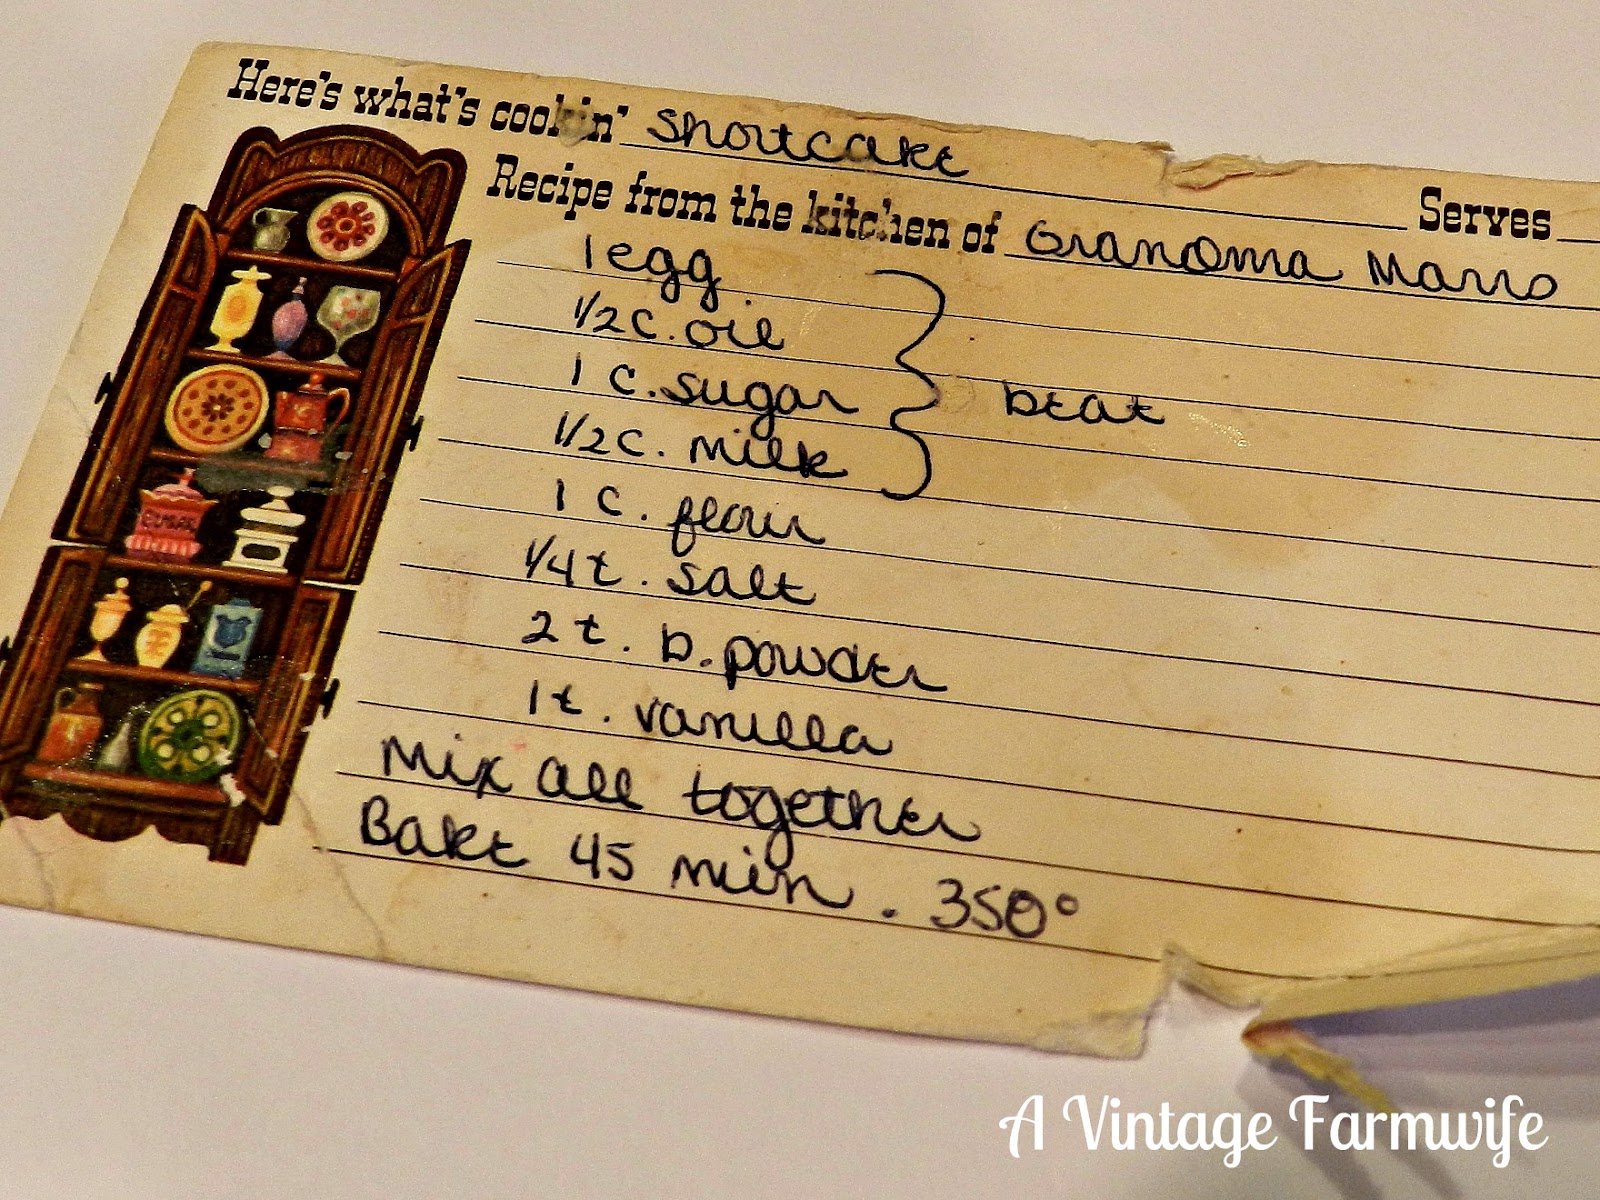 Here's what's cookin' Shortcake Serves
Recipe from the kitchen of Grandma Marro
1 egg
1/2 c. oil
1 c. sugar
beat
1/2 c. milk
1 c. flour
1/4 t. salt
2 t. b. powder
1 t. vanilla
Mix all together
Bake 45 min. 350°
A Vintage Farmwife